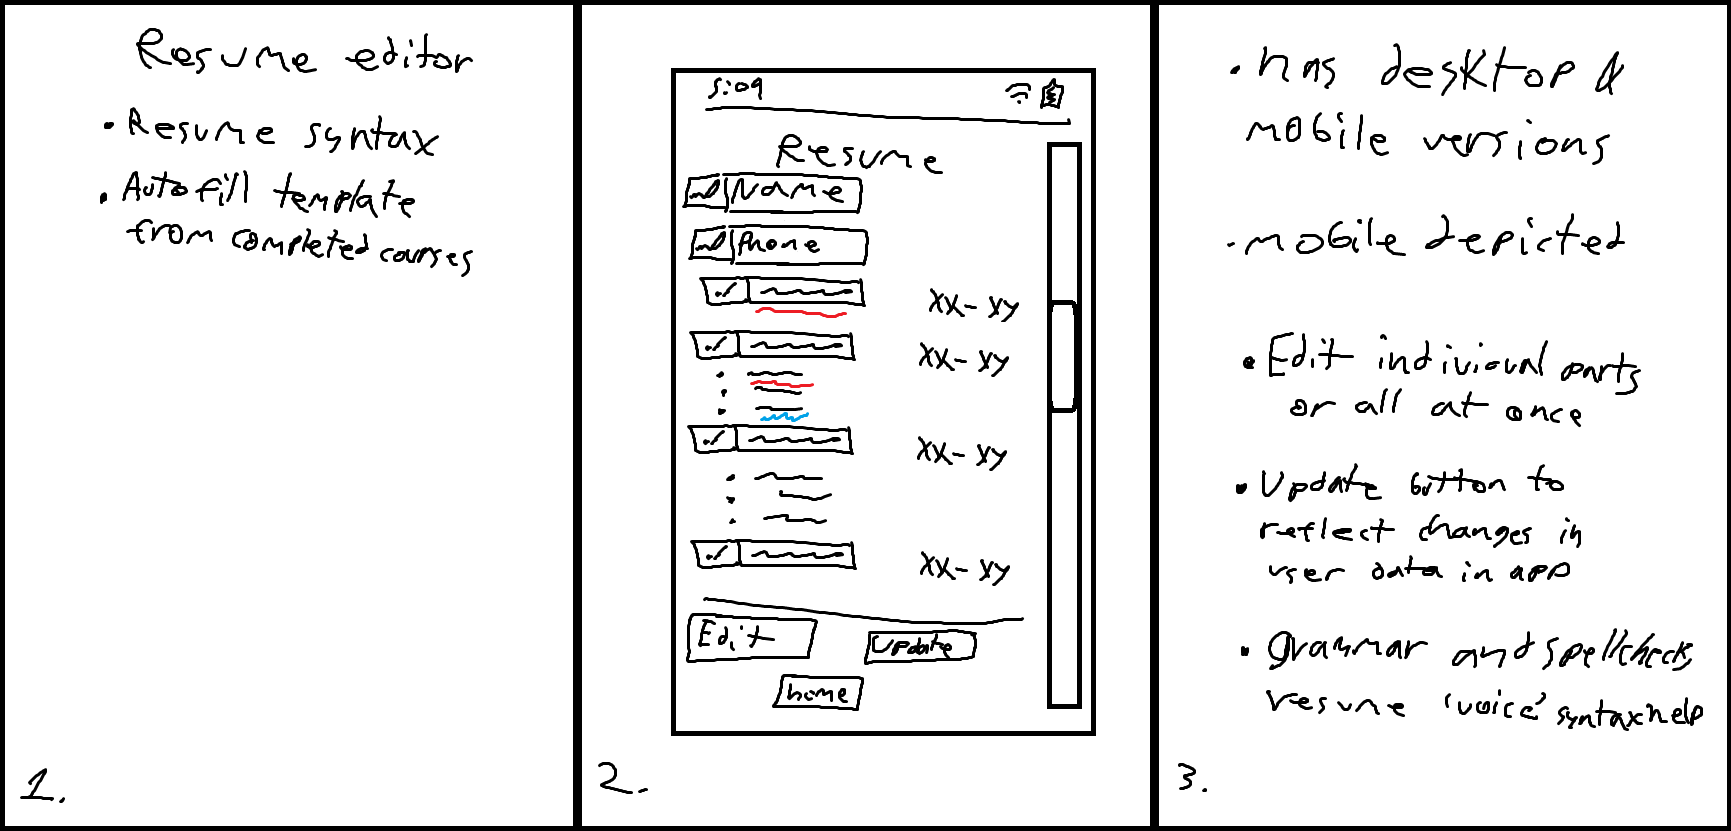 Resume editor
• Resume syntax
• Autofill template
from completed courses
1.
5:09
Resume
Name
Phone
XX - XY
XX - XY
XX - XY
XX - XY
Edit
Update
home
2.
• has desktop &
mobile versions
• mobile depicted
• Edit indivioual parts
or all at once
• Update button to
reflect changes in
user data in app
• grammar and spellcheck,
resume 'voice' syntax help
3.